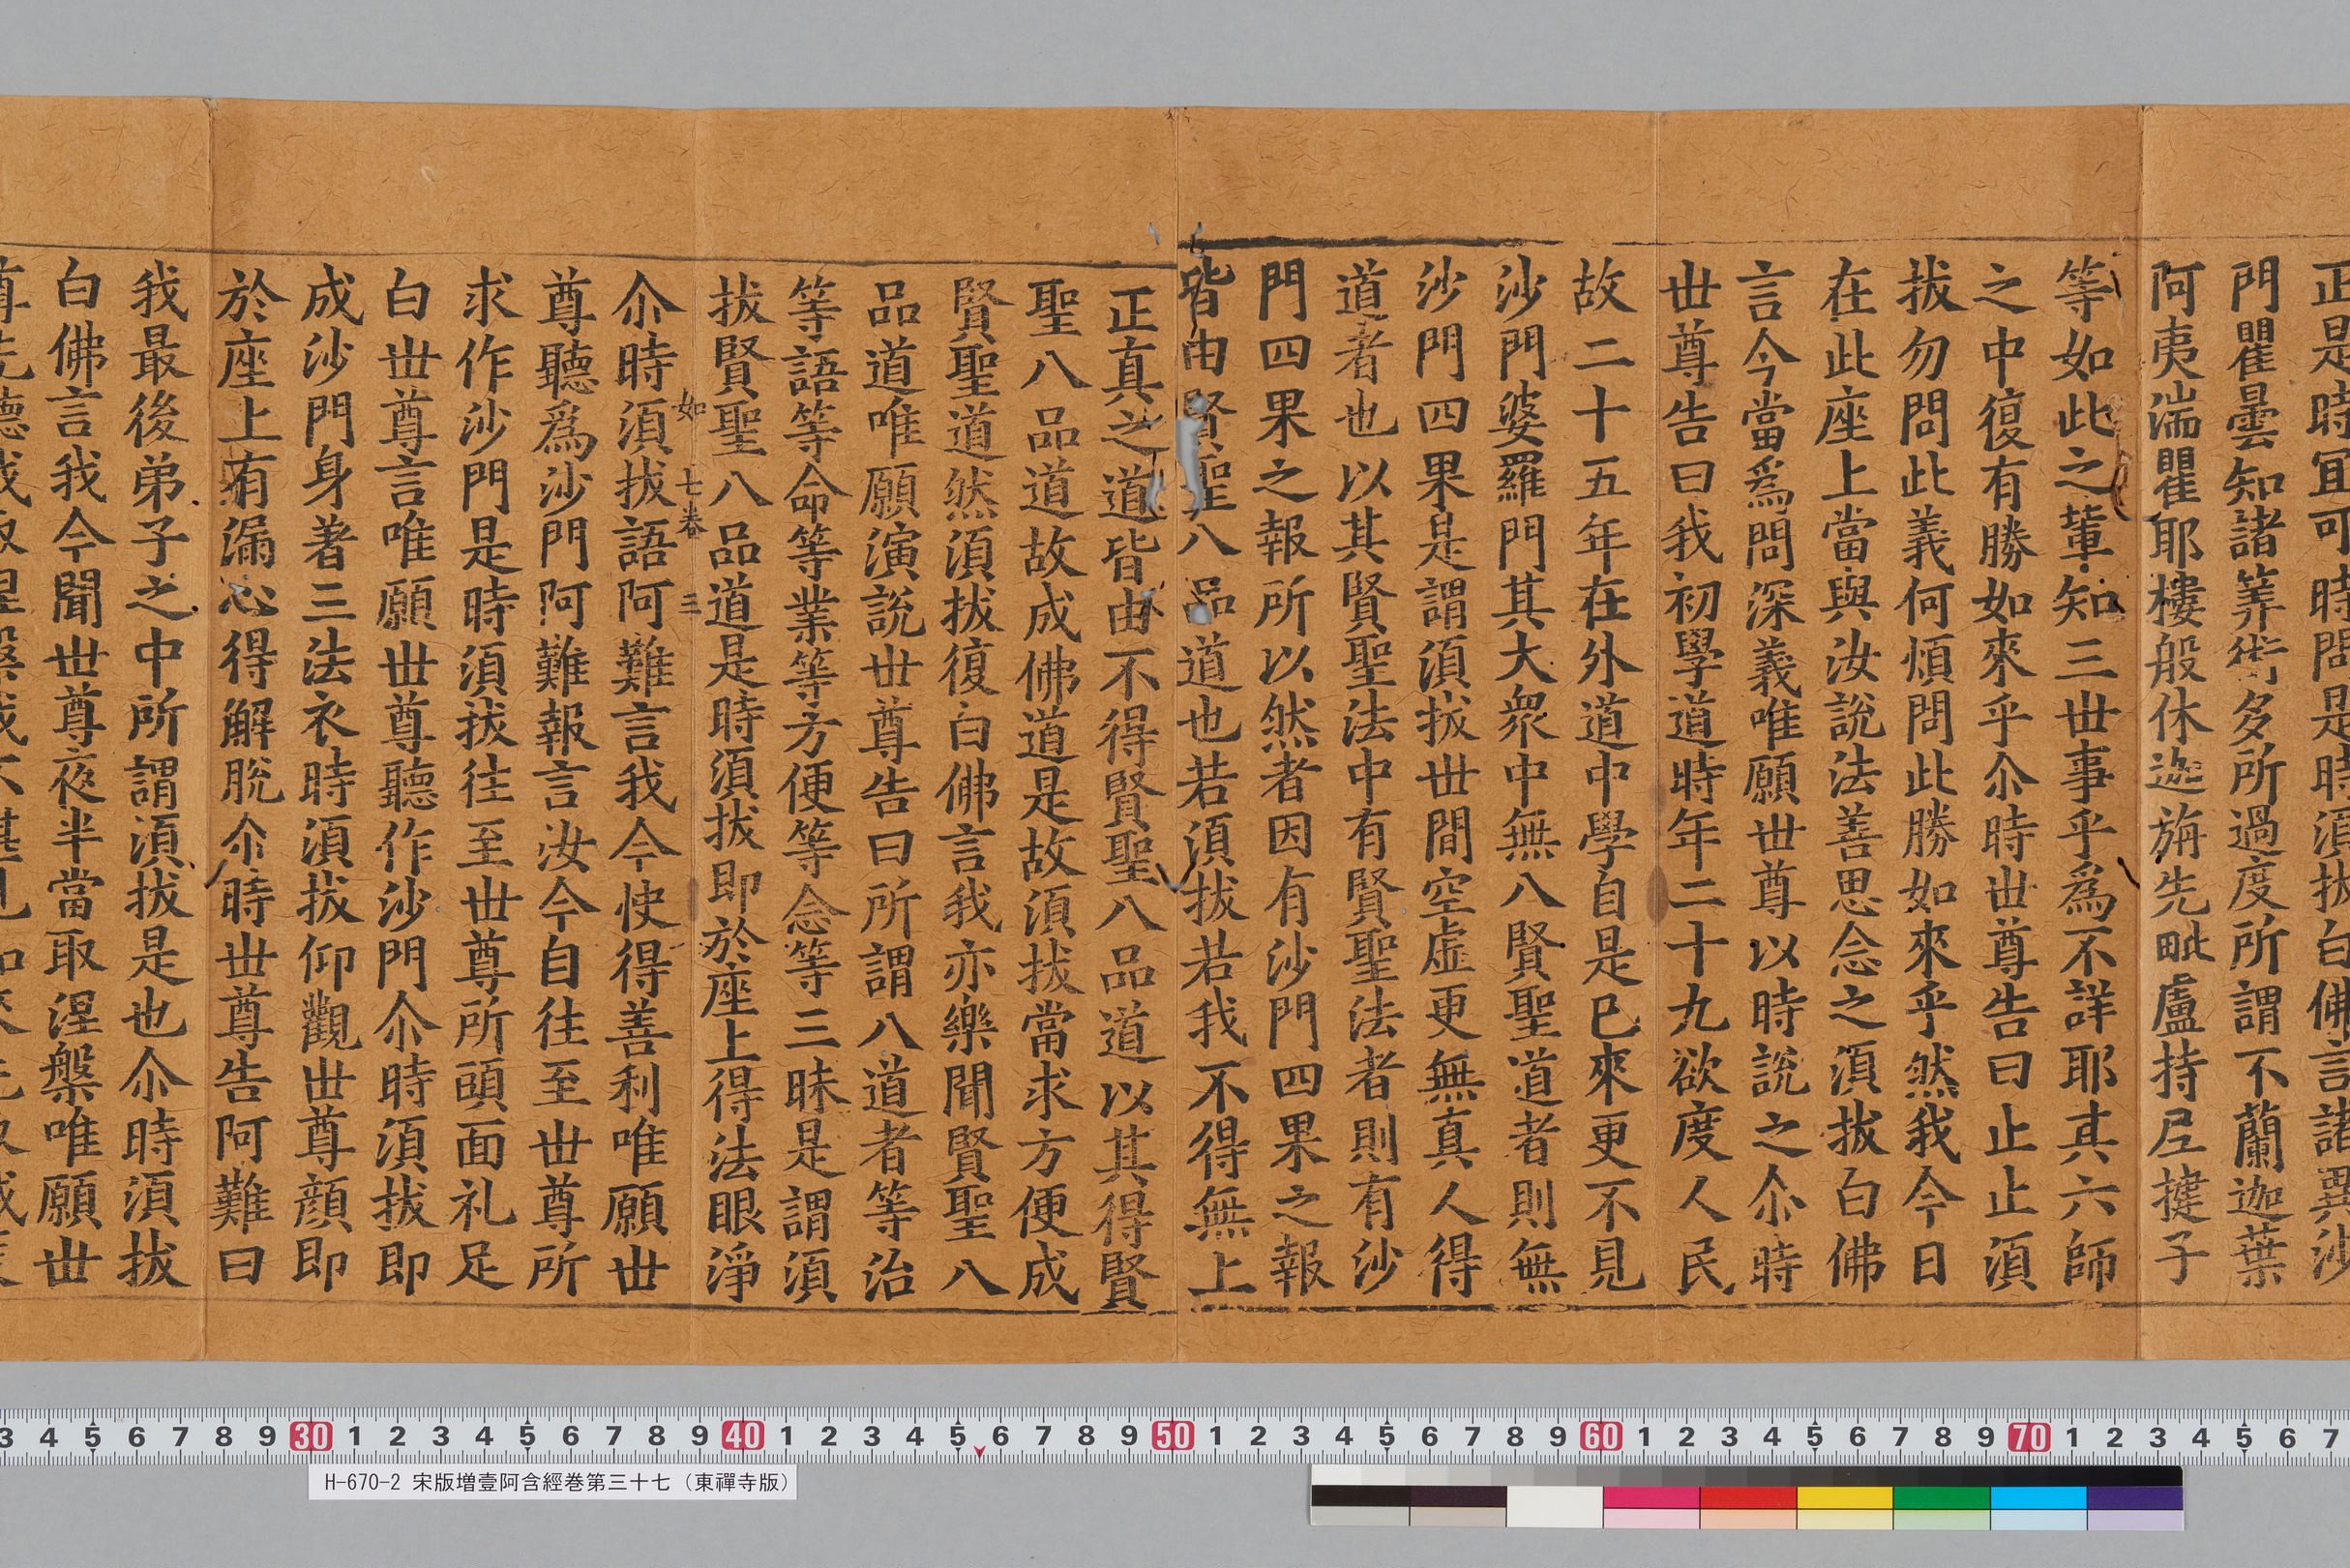 正是時宜可時問是時須拔白佛言諸異沙
門瞿曇知諸筭術多所過度所謂不蘭迦葉
阿夷湍瞿耶樓般休迦旃先毗盧持尼揵子
等如此之輩知三世事乎爲不詳耶其六師
之中復有勝如來乎尒時世尊告曰止止須
拔勿問此義何煩問此勝如來乎然我今日
在此座上當與汝說法善思念之須拔白佛
言今當爲問深義唯願世尊以時說之尒時
世尊告曰我初學道時年二十九欲度人民
故二十五年在外道中學自是已來更不見
沙門婆羅門其大衆中無八賢聖道者則無
沙門四果是謂須拔世間空虛更無真人得
道者也以其賢聖法中有賢聖法者則有沙
門四果之報所以然者因有沙門四果之報
皆由賢聖八品道也若須拔若我不得無上
正真之道皆由不得賢聖八品道以其得賢
聖八品道故成佛道是故須拔當求方便成
賢聖道然須拔復白佛言我亦樂聞賢聖八
品道唯願演說世尊告曰所謂八道者等治
等語等命等業等方便等念等三昧是謂須
拔賢聖八品道是時須拔即於座上得法眼淨
如 七卷 三
尒時須拔語阿難言我今快得善利唯願世
尊聽爲沙門阿難報言汝今自往至世尊所
求作沙門是時須拔往至世尊所頭面礼足
白世尊言唯願世尊聽作沙門尒時須拔即
成沙門身著三法衣時須拔仰觀世尊顔即
於座上有漏心得解脫尒時世尊告阿難曰
我最後弟子之中所謂須拔是也尒時須拔
白佛言我今聞世尊夜半當取涅槃唯願世
H-670-2 宋版増壹阿含經巻第三十七（東禪寺版）